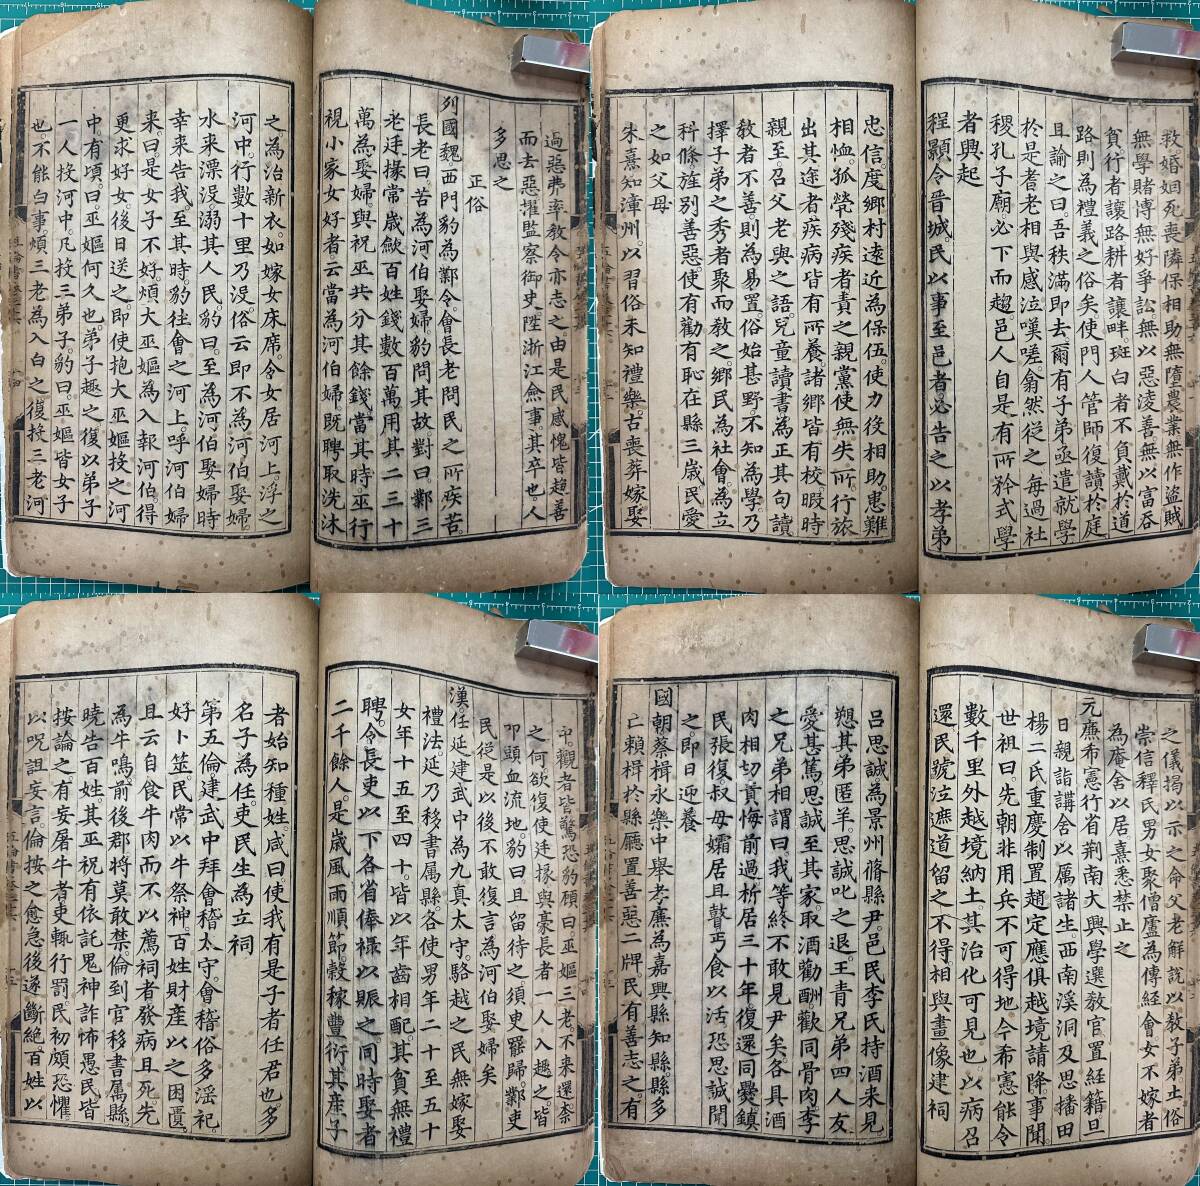 過惡弗率教令亦志之由是民感愧皆趨善
而去惡擢監察御史陞浙江僉事其卒也人
多思之
正俗
列國魏西門豹為鄴令會長老問民之所疾苦
長老曰苦為河伯娶婦豹問其故對曰鄴三
老廷掾常歳歛百姓錢數百萬用其二三十
萬為娶婦與祝巫共分其餘錢當其時巫行
視小家女好者云當為河伯婦既聘取洗沐
之為治新衣如嫁女床席令女居河上浮之
河中行數十里乃没俗云即不為河伯娶婦
水來漂没溺其人民豹曰至為河伯娶婦時
幸來告我至其時豹往會之河上呼河伯婦
來曰是女子不好煩大巫嫗為入報河伯得
更求好女後日送之即使抱大巫嫗投之河
中有頃曰巫嫗何久也弟子趣之復以弟子
一人投河中凡投三弟子豹曰巫嫗皆女子
也不能白事煩三老為入白之復投三老河
救婚姻死喪隣保相助無墮農業無作盜賊
無學賭博無好爭訟無以惡淩善無以富吞
貧行者讓路耕者讓畔班白者不負戴於道
路則為禮義之俗矣使門人管師復讀於庭
且諭之曰吾秩滿即去爾有子弟亟遣就學
於是耆老相與感泣嘆嗟翕然從之每過社
稷孔子廟必下而趨邑人自是有所矜式學
者興起
程顥令晉城民以事至邑者必告之以孝弟
忠信度鄉村遠近為保伍使力後相助患難
相恤孤煢殘疾者責之親黨使無失所行旅
出其途者疾病皆有所養諸鄉皆有校暇時
親至召父老與之語兒童讀書為正其句讀
教者不善則為易置俗始甚野不知為學乃
擇子弟之秀者聚而教之鄉民為社會為立
科條旌別善惡使有勸有恥在縣三歳民愛
之如父母
朱熹知漳州以習俗未知禮樂古喪葬嫁娶
中觀者皆驚恐豹顧曰巫嫗三老不來還奈
之何欲復使廷掾與豪長者一人入趣之皆
叩頭血流地豹曰且留待之須臾罷歸鄴吏
民從是以後不敢復言為河伯娶婦矣
漢任延建武中為九真太守駱越之民無嫁娶
禮法延乃移書属縣各使男年二十至五十
女年十五至四十皆以年齒相配其貧無禮
聘令長吏以下各省俸祿以賑之同時娶者
二千餘人是歳風雨順節穀稼豐衍其産子
者始知種姓咸曰使我有是子者任君也多
名子為任吏民生為立祠
第五倫建武中拜會稽太守會稽俗多滛祀
好卜筮民常以牛祭神百姓財産以之困匱
且云自食牛肉而不以薦祠者發病且死先
為牛鳴前後郡將莫敢禁倫到官移書属縣
曉告百姓其巫祝有依託鬼神詐怖愚民皆
按論之有妄屠牛者吏輒行罰民初頗恐懼
以呪詛妄言倫按之愈急後遂斷絶百姓以
之儀揭以示之命父老解說以教子弟土俗
崇信釋氏男女聚僧廬為傳經會女不嫁者
為庵舍以居熹悉禁止之
元廉希憲行省荆南大興學選教官置經籍旦
日親詣講舍以厲諸生西南溪洞及思播田
楊二氏重慶制置趙定應俱越境請降事聞
世祖曰先朝非用兵不可得地今希憲能令
數千里外越境納土其治化可見也以病召
還民號泣遮道留之不得相與畫像建祠
呂思誠為景州蓨縣尹邑民李氏持酒來見
愬其弟匿羊思誠叱之退王青兄弟四人友
愛甚篤思誠至其家取酒勸酬歡同骨肉李
之兄弟相謂曰我等終不敢見尹矣各具酒
肉相切責悔前過析居三十年復還同㸑鎮
民張復叔母孀居且瞽丐食以活恐思誠聞
之即日迎養
國朝蔡楫永樂中舉孝廉為嘉興縣知縣縣多
亡賴楫於縣廳置善惡二牌民有善志之有